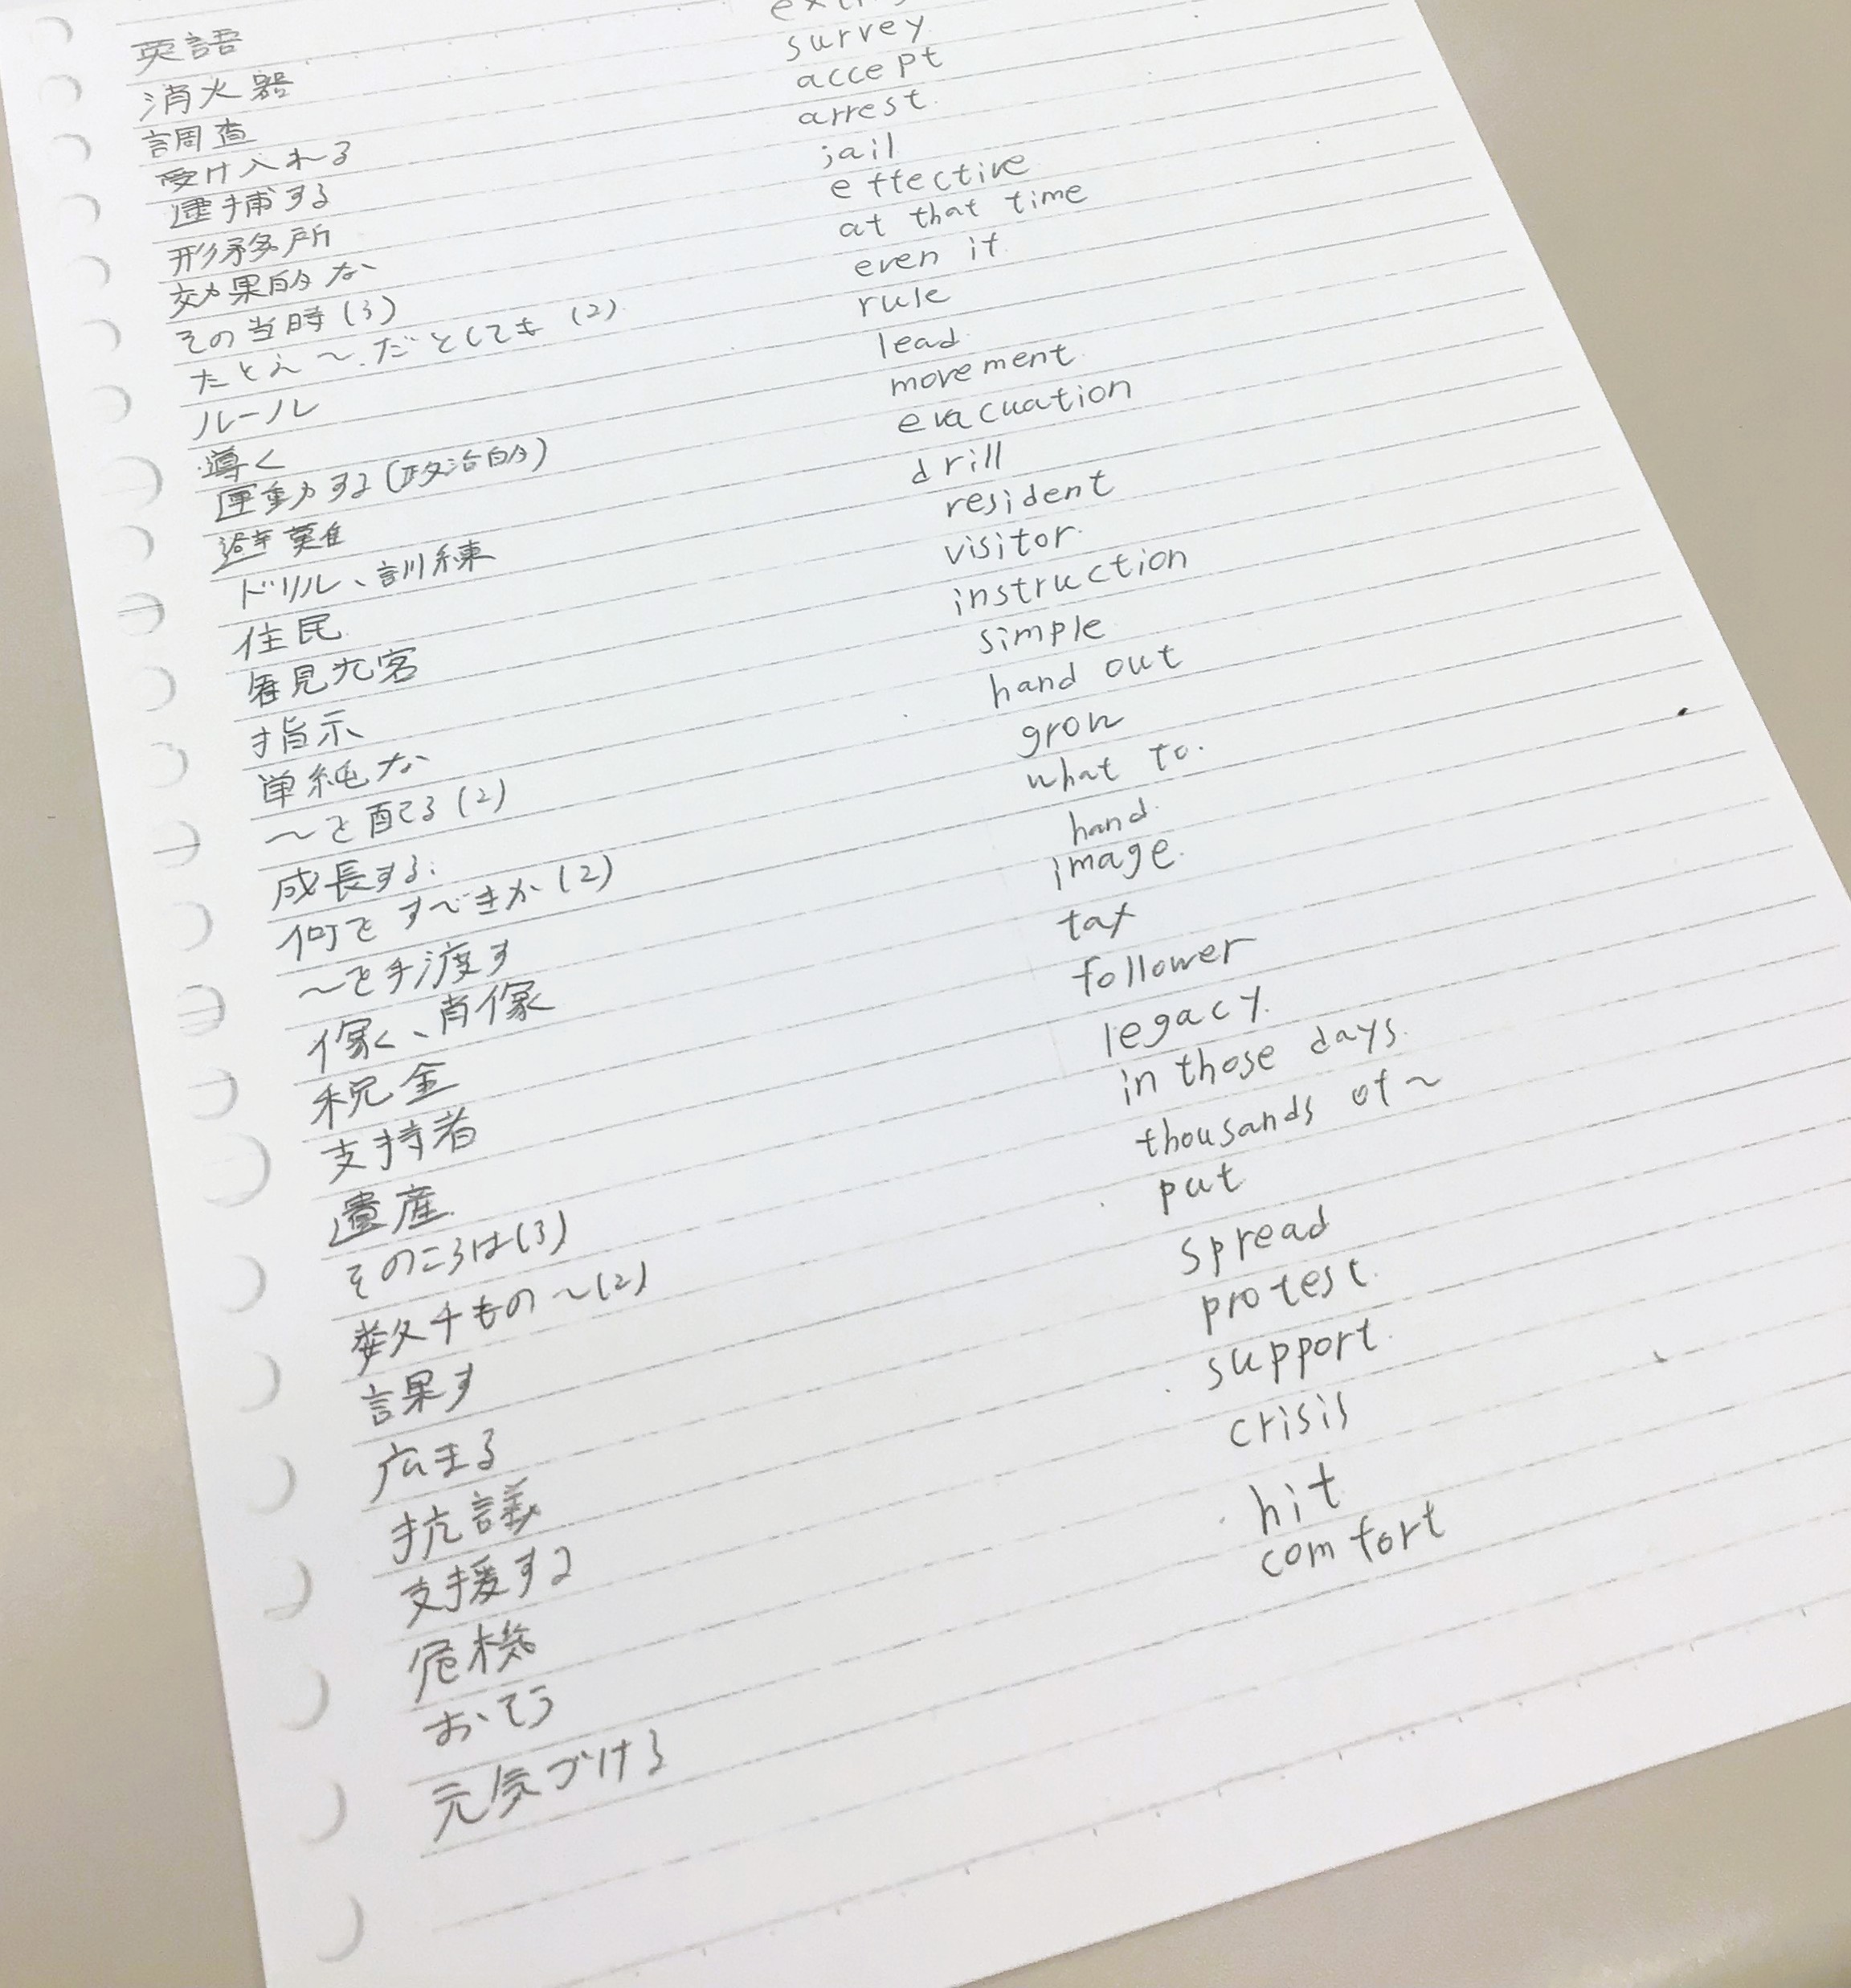 英語
消火器
調査 survey
受け入れる accept
逮捕する arrest
形務所 jail
効果的な effective
その当時(3) at that time
たとえ〜だとしても(2) even if
ルール rule
導く lead
運動する(政治的) movement
避難 evacuation
ドリル、訓練 drill
住民 resident
観光客 visitor
指示 instruction
単純な simple
〜を配る(2) hand out
成長する grow
何をすべきか(2) what to
〜を手渡す hand
像く、肖像 image
税金 tax
支持者 follower
遺産 legacy
そのころは(3) in those days
数千もの〜(2) thousands of〜
課す put
広まる spread
抗議 protest
支援する support
危機 crisis
おそう hit
元気づける comfort